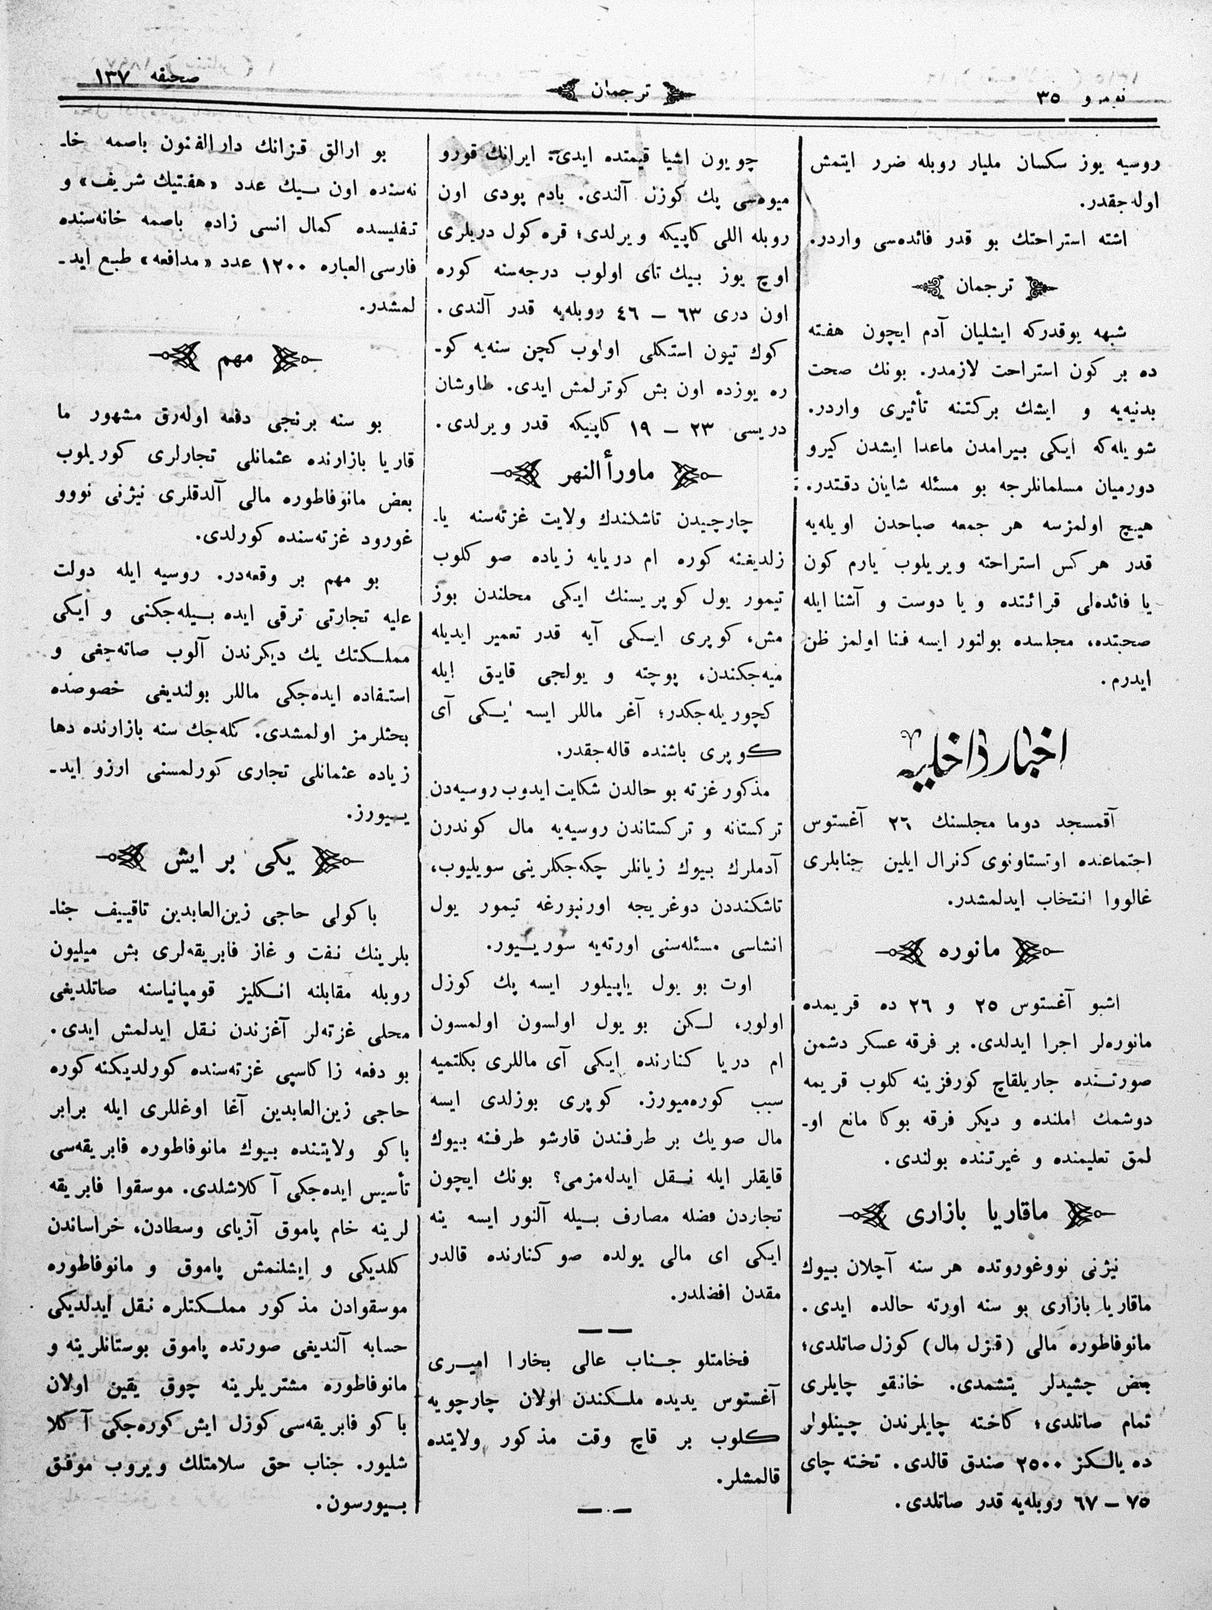 نومرو ۳٥
ترجمان
صحيفه ۱۳۷
روسيه يوز سكسان مليار روبله ضرر ايتمش
اوله جقدر.
اشته استراحتك بو قدر فائده‌سی واردر.
ترجمان
شبهه يوقدركه ايشليان آدم ايچون هفته
ده بر كون استراحت لازمدر. بونك صحت
بدنيه‌يه و ايشك بركتنه تأثيری واردر.
شويله‌كه ايكی بيرامدن ماعدا ايشدن كيرو
دورميان مسلمانلرجه بو مسئله شايان دقتدر.
هيچ اولمزسه هر جمعه صباحدن اويله‌يه
قدر هركس استراحته ويريلوب يارم كون
يا فائده‌لی قرائتده ويا دوست و آشنا ايله
صحبتده، مجلسده بولنور ايسه فنا اولمز ظن
ايدرم.
اخبار داخليه
آقمسجد دوما مجلسنك ۲٦ آغستوس
اجتماعنده اوتستاونوی كنرال ايلين جنابلری
غالووا انتخاب ايدلمشدر.
مانوره
اشبو آغستوس ۲٥ و ۲٦ ده قريمده
مانوره‌لر اجرا ايدلدی. بر فرقه عسكر دشمن
صورتنده جاريلقاچ كورفزينه كلوب قريمه
دوشمك املنده و ديكر فرقه بوكا مانع او۔
لمق تعليمنده و غيرتنده بولندی.
ماقاريا بازاری
نيژنی نووغوروتده هر سنه آچلان بيوك
ماقاريا بازاری بو سنه اورته حالده ايدی.
مانوفاطوره مالی (قزل مال) كوزل صاتلدی؛
بعض چشيدلر يتشمدی. خانقو چايلری
تمام صاتلدی؛ كاخته چايلرندن چينلولر
ده يالكز ۲٥۰۰ صندق قالدی. تخته چای
۷٥ – ٦۷ روبله‌يه قدر صاتلدی.
چويون اشيا قيمتده ايدی. ايرانك قورو
ميوه‌سی پك كوزل آلندی. بادم پودی اون
روبله اللی كاپيكه ويرلدی؛ قره كول دريلری
اوچ يوز بيك تای اولوب درجه‌سنه كوره
اون دری ٦۳ – ٤٦ روبله‌يه قدر آلندی.
كوك تيون استكلی اولوب كچن سنه‌يه كو۔
ره يوزده اون بش كوترلمش ايدی. طاوشان
دريسی ۲۳ – ۱۹ كاپيكه قدر ويرلدی.
ماورأالنهر
چارجيدن تاشكندك ولايت غزته‌سنه يا۔
زلديغنه كوره ام دريايه زياده صو كلوب
تيمور يول كوپريسنك ايكی محلندن بوز
مش، كوپری ايسكی آيه قدر تعمير ايديله
ميه‌جكندن، پوچته و يولجی قايق ايله
كچوريله‌جكدر؛ آغر ماللر ايسه ايكی آی
كوپری باشنده قاله‌جقدر.
مذكور غزته بو حالدن شكايت ايدوب روسيه‌دن
تركستانه و تركستاندن روسيه‌يه مال كوندرن
آدملرك بيوك زيانلر چكه‌جكلرينی سويليوب،
تاشكنددن دوغريجه اورنبورغه تيمور يول
انشاسی مسئله‌سنی اورته‌يه سوريیور.
اوت بو يول ياپيلور ايسه پك كوزل
اولور، لكن بو يول اولسون اولمسون
ام دريا كنارنده ايكی آی ماللری بكلتميه
سبب كوره‌ميورز. كوپری بوزلدی ايسه
مال صويك بر طرفندن قارشو طرفنه بيوك
قايقلر ايله نقل ايدله‌مزمی؟ بونك ايچون
تجاردن فضله مصارف بيله آلنور ايسه ينه
ايكی ای مالی يولده صو كنارنده قالدر
مقدن افضلدر.
فخامتلو جناب عالی بخارا اميری
آغستوس يديده ملكندن اولان چارجويه
كلوب بر قاچ وقت مذكور ولايتده
قالمشلر.
بو ارالق قزانك دارالفنون باصمه خا۔
نه‌سنده اون بيك عدد «هفتيك شريف» و
تفليسده كمال انسی زاده باصمه خانه‌سنده
فارسی العباره ۱۲۰۰ عدد «مدافعه» طبع ايد۔
لمشدر.
مهم
بو سنه برنجی دفعه اوله‌رق مشهور ما
قاريا بازارنده عثمانلی تجارلری كوريلوب
بعض مانوفاطوره مالی آلدقلری نيژنی نووو
غورود غزته‌سنده كورلدی.
بو مهم بر وقعه‌در. روسيه ايله دولت
عليه تجارتی ترقی ايده بيله‌جكنی و ايكی
مملكتك يك ديكرندن آلوب صاته‌جغی و
استفاده ايده‌جكی ماللر بولنديغی خصوصنده
بحثلرمز اولمشدی. كله‌جك سنه بازارنده دها
زياده عثمانلی تجاری كورلمسنی ارزو ايد۔
يیورز.
يكی بر ايش
باكولی حاجی زين‌العابدين تاقييف جنا۔
بلرينك نفت و غاز فابريقه‌لری بش ميليون
روبله مقابلنه انكليز قومپانياسنه صاتلديغی
محلی غزته‌لر آغزندن نقل ايدلمش ايدی.
بو دفعه زاكاسپی غزته‌سنده كورلديكنه كوره
حاجی زين‌العابدين آغا اوغللری ايله برابر
باكو ولايتنده بيوك مانوفاطوره فابريقه‌سی
تأسيس ايده‌جكی آكلاشلدی. موسقوا فابريقه
لرينه خام پاموق آزيای وسطادن، خراساندن
كلديكی و ايشلنمش پاموق و مانوفاطوره
موسقوادن مذكور مملكتلره نقل ايدلديكی
حسابه آلنديغی صورتده پاموق بوستانلرينه و
مانوفاطوره مشتريلرينه چوق يقين اولان
باكو فابريقه‌سی كوزل ايش كوره‌جكی آكلا
شليور. جناب حق سلامتلك ويروب موفق
بيورسون.